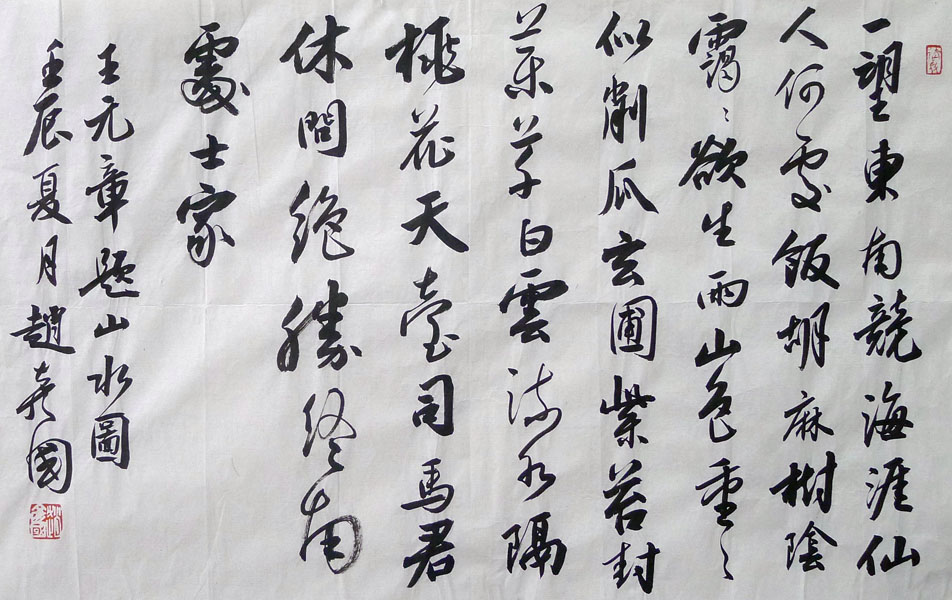 一望東南競海涯仙
人何處飯胡麻樹陰
靄々欲生雨山色重々
似削瓜玄圃紫苔封
藥草白雲流水隔
桃花天臺司馬君
休問絕勝終南
處士家
王元章題山水圖
壬辰夏月趙國